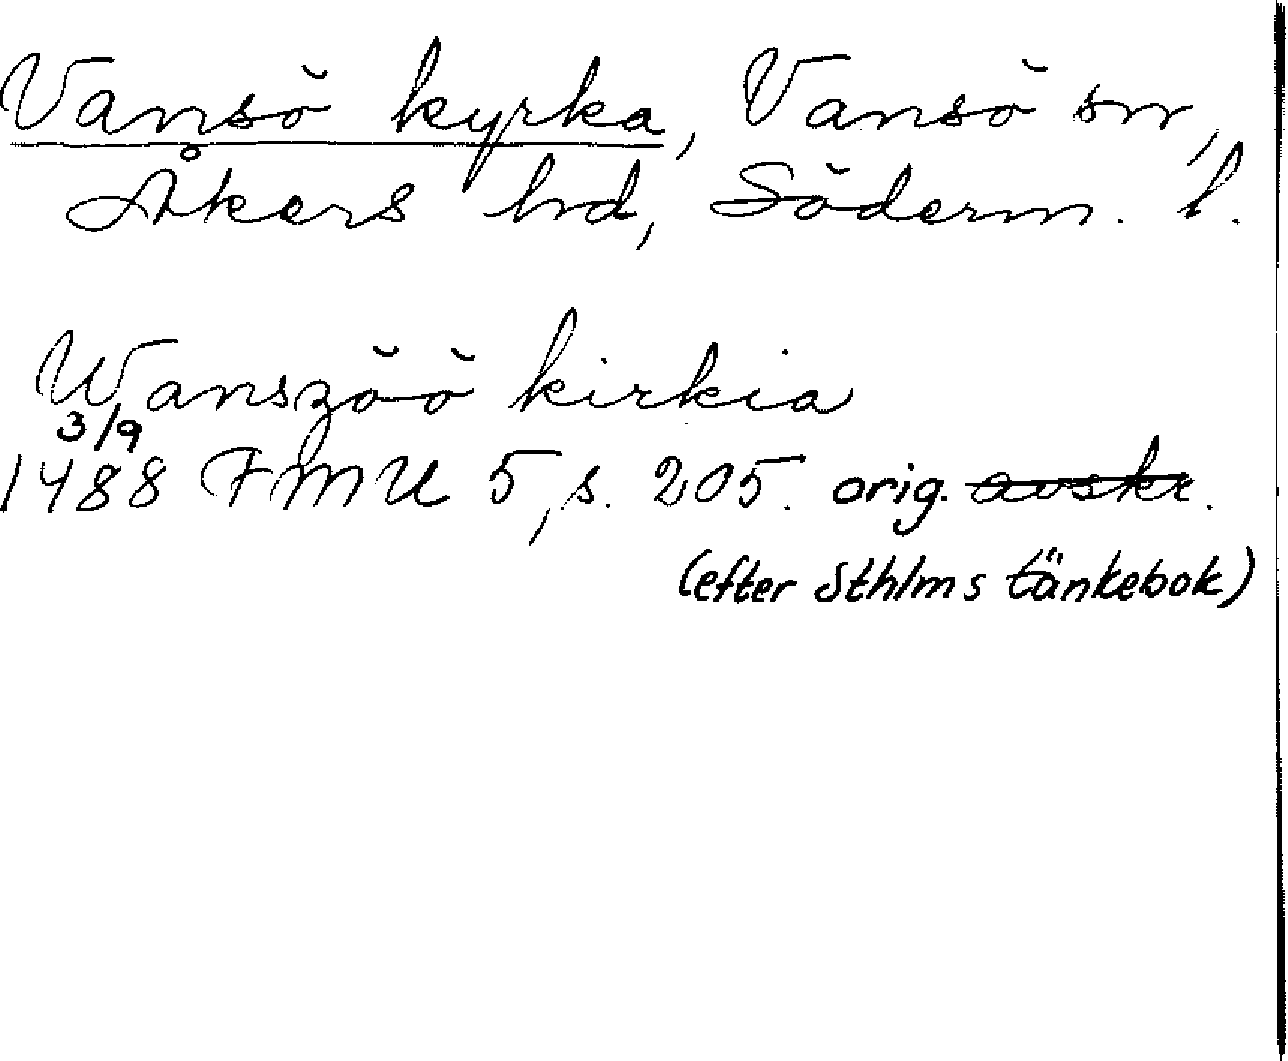 Vansö kyrka, Vansö sn,
Åkers hd, Söderm. l.
Wanszöö kirkia
3/9
1488 FMU 5, s. 205. orig. avskr.
(efter Sthlms tänkebok)